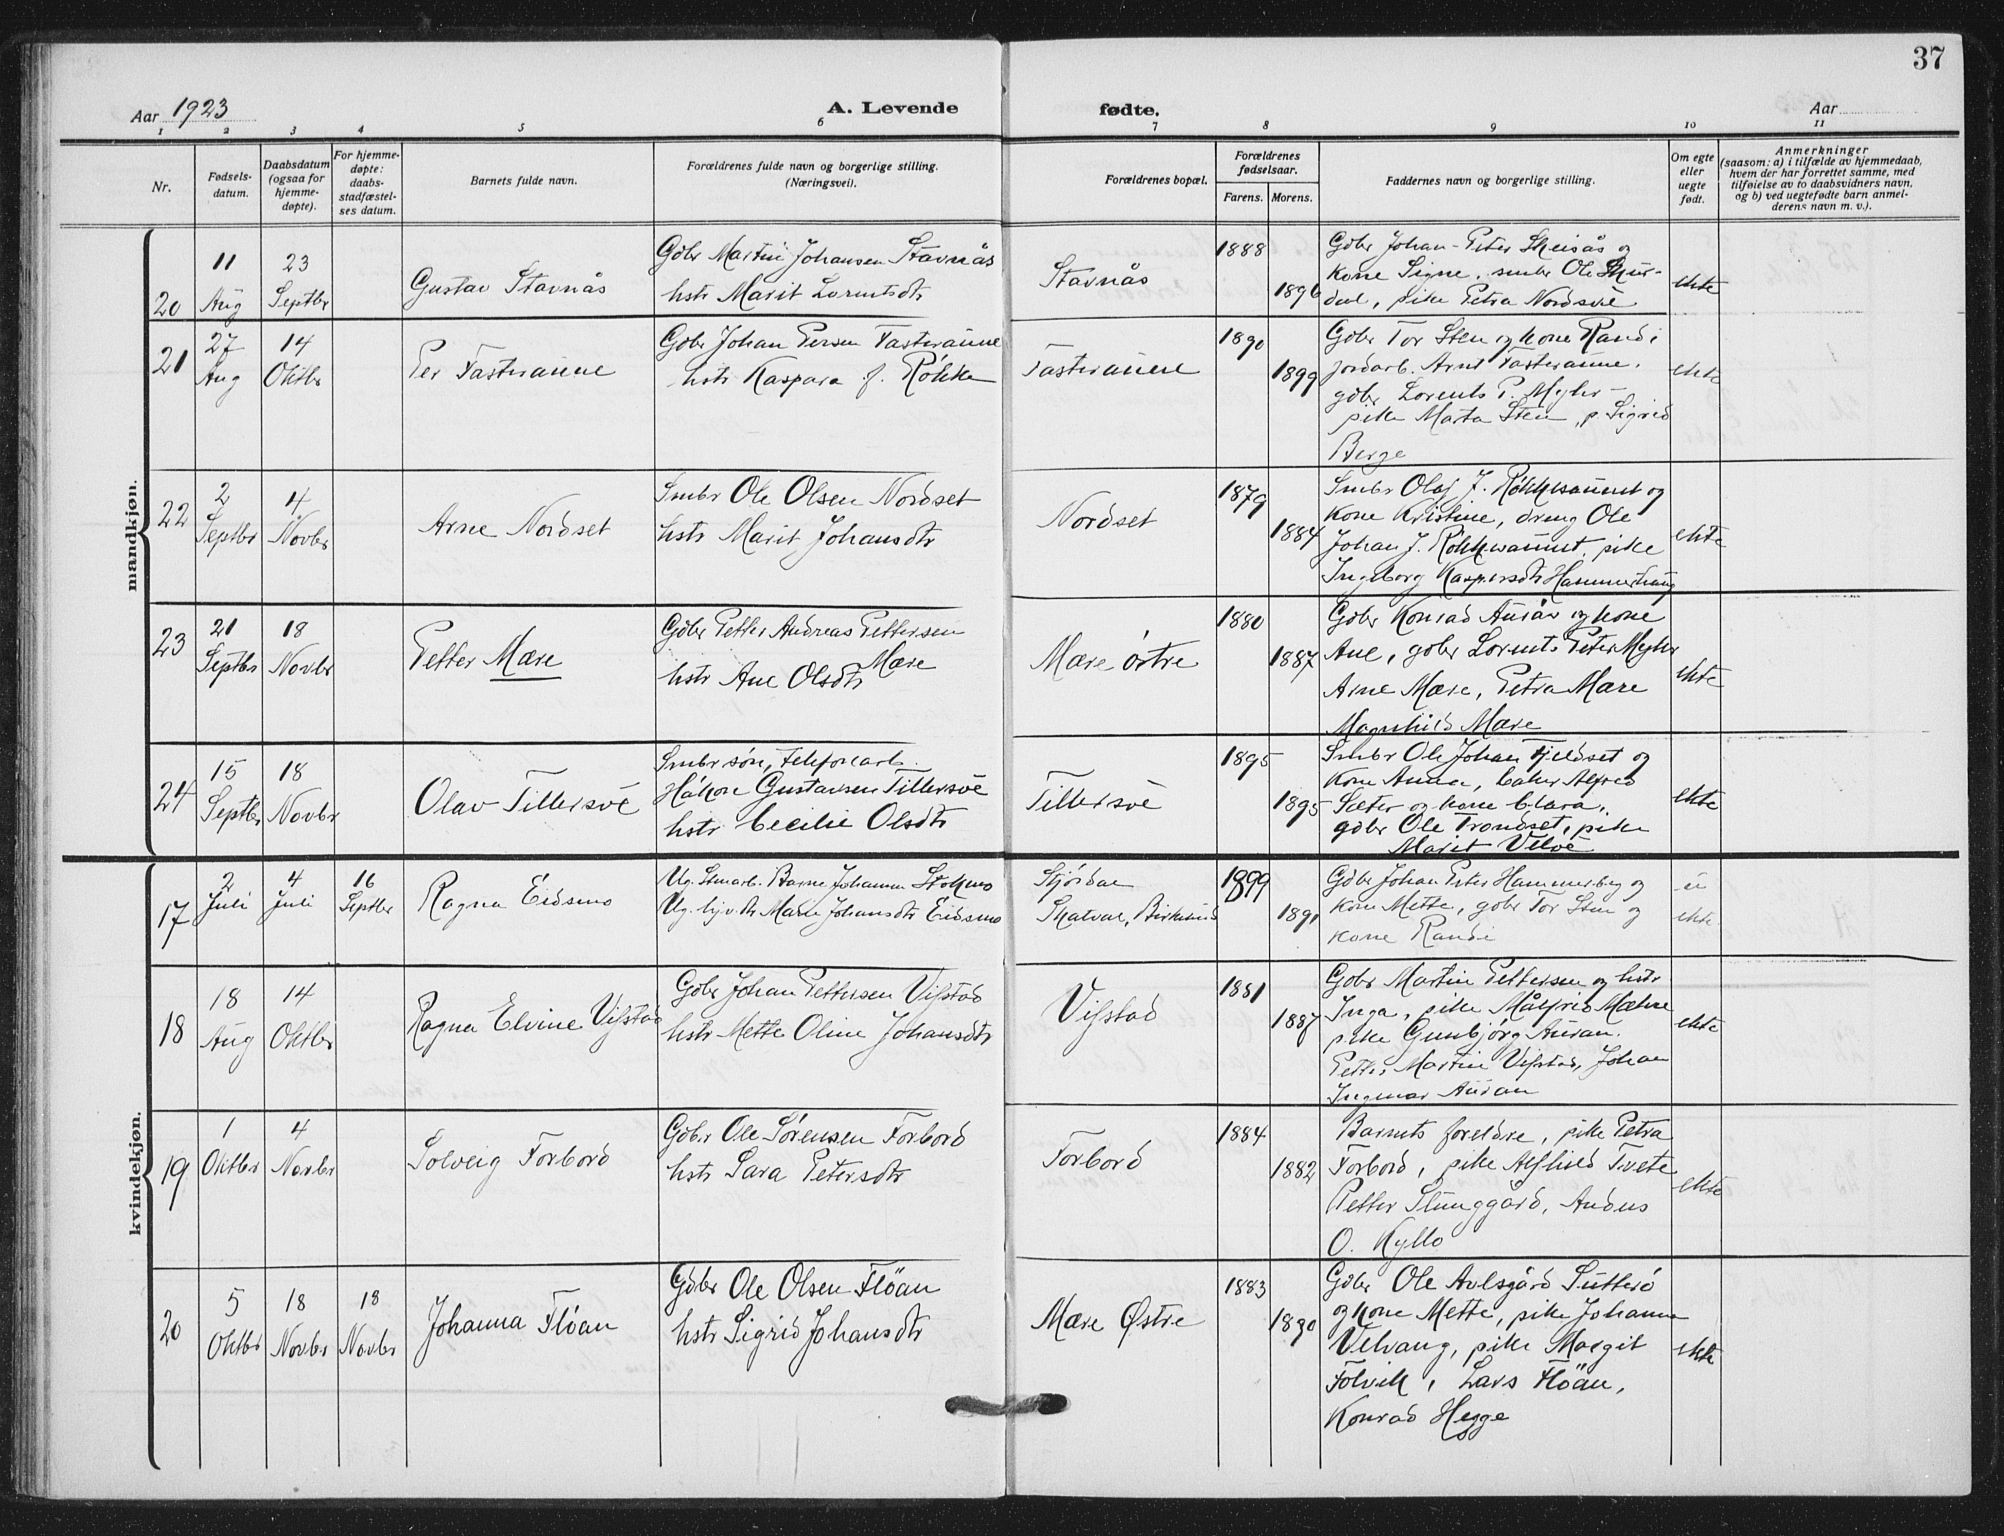 37
Aar 1923
A. Levende fødte.
Aar
1 2 3 4 5 6 7 8 9 10 11
Nr.
Fødsels-
datum.
Daabsdatum
(ogsaa for
hjemme-
døpte).
For hjemme-
døpte:
daabs-
stadfæstel-
ses datum.
Barnets fulde navn.
Forældrenes fulde navn og borgerlige stilling.
(Næringsvei).
Forældrenes bopæl.
Forældrenes
fødselsaar.
Farens. Morens.
Faddernes navn og borgerlige stilling.
Om egte
eller
uegte
født.
Anmerkninger
(saasom: a) i tilfælde av hjemmedaab,
hvem der har forrettet samme, med
tilføielse av to daabsvidners navn,
og b) ved uegtefødte barn anmel-
derens navn m. v.).
mandkjøn.
20
11
Aug
23
Septbr
Gustav Stavnås
Gdbr Martin Johansen Stavnås
hstr Marit Lorntsdtr
Stavnås
1888
1896
Gdbr Johan Peter Skeisås og
kone Signe, smbr Ole Skur-
dal, pike Petra Nordsve
ekte
21
27
Aug
14
Oktbr
Per Fasteraune
Gdbr Johan Persen Fasteraune
hstr Kaspara f. Røkke
Fasteraune
1890
1899
Gdbr Tor Sten og kone Randi
jordarb. Arnt Fasteraune,
gdbr Lorents P. Myhr
pike Marta Sten, p. Sigrid
Berge
ekte
22
2
Septbr
4
Novbr
Arne Nordset
Smbr Ole Olsen Nordset
hstr Marit Johansdtr
Nordset
1879
1884
Smbr Olaf J. Røkkvaunet og
kone Kristine, dreng Ole
Johan J. Røkkvaunet, pike
Ingeborg Kaspersdtr Hammerhaug
ekte
23
21
Septbr
18
Novbr
Petter Mære
Gdbr Petter Andreas Pettersen
Mære
hstr Ane Olsdtr
Mære østre
1880
1887
Gdbr Konrad Aurån og kone
Ane, gdbr Lornts Peter Myhr
Arne Mære, Petra Mære
Magnhild Mære
ekte
24
15
Septbr
18
Novbr
Olav Tillersve
Smbrsøn, telefonarb.
Håkon Gustavsen Tillersve
hstr Cecilie Olsdtr
Tillersve
1895
1895
Smbr Ole Johan Fjeldset og
kone Anna, baker Alfred
Sæter og kone Clara,
gdbr Ole Trondset, pike
Marit Velve
ekte
kvindekjøn.
17
2
Juli
4
Juli
16
Septbr
Ragna Eidsmo
Ug. Stenarb. Barne Johannes Stokmo
Ug. Marie Johansdtr Eidsmo
Stjørdal
Skatval, Birkelund
1899
1891
Gdbr Johan Peter Hammerberg og
kone Mette, gdbr Tor Sten og
kone Randi
ei
ekte
18
18
Aug
14
Oktbr
Ragna Elvine Vifstad
Gdbr Johan Pettersen Vifstad
hstr Mette Oline Johansdtr
Vifstad
1881
1887
Gdbr Martin Pettersen og hstr
Inga, pike Målfrid Mæhre
pike Gunbjørg Auran,
Petter Martin Vifstad, Johan
Ingmar Auran
ekte
19
1
Oktbr
4
Novbr
Solveig Forbord
Gdbr Ole Sørensen Forbord
hstr Sara Petersdtr
Forbord
1884
1882
Barnets foreldre, pike Petra
Forbord, pike Alfhild Tvete
Petter Stunggård, Anders
O. Kyllo
ekte
20
5
Oktbr
18
Novbr
18
Novbr
Johanna Fløan
Gdbr Ole Olsen Fløan
hstr Sigrid Johansdtr
Mære Østre
1883
1890
Gdbr Ole Avlsgård Sutterø
og kone Mette, pike Johanna
Velvang, pike Margit
Folvik, Lars Fløan,
Konrad Hegge
ekte